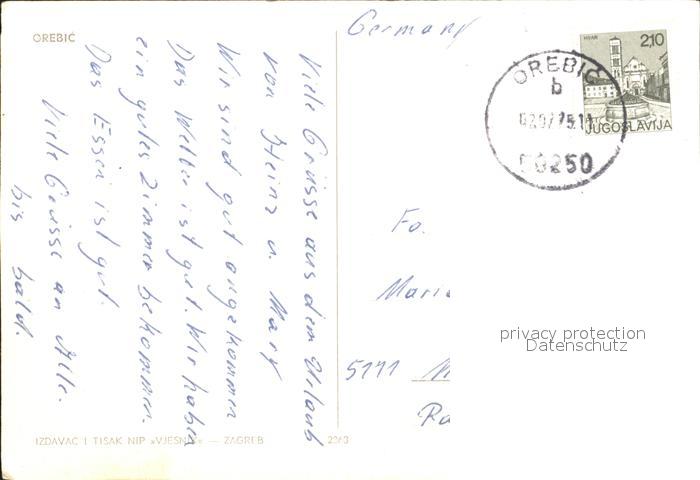 OREBIĆ
Viele Grüsse aus dem Urlaub
von Heinz u. Mary
Wir sind gut angekommen
Das Wetter ist gut. Wir haben
ein gutes Zimmer bekommen.
Das Essen ist gut.
Viele Grüsse an Alle.
bis bald.
IZDAVAC I TISAK NIP »VJESNIK« — ZAGREB
Germany
HVAR
2,10
JUGOSLAVIJA
OREBIĆ
b
50250
Fo.
privacy protection
Datenschutz